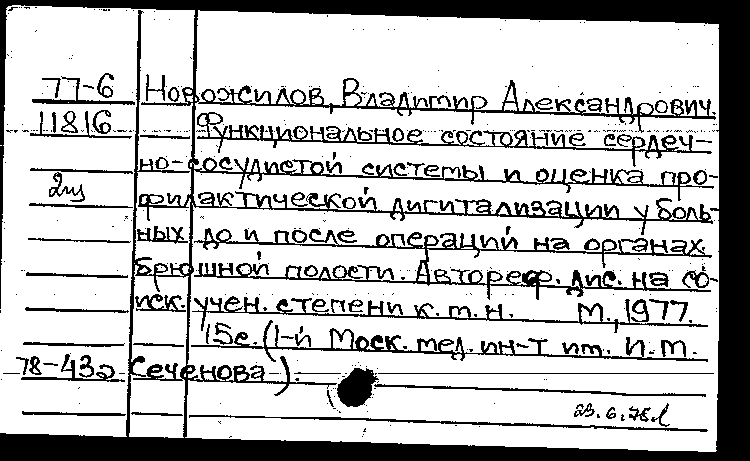 77-6 Новожилов, Владимир Александрович.
11816 Функциональное состояние сердеч-
но-сосудистой системы и оценка про-
2щ филактической дигитализации у боль-
ных до и после операций на органах
брюшной полости. Автореф. дис. на со-
иск. учен. степени к.м.н. М., 1977.
15с. (1-й Моск. мед. ин-т им. И.М.
78-432 Сеченова).
23.6.78